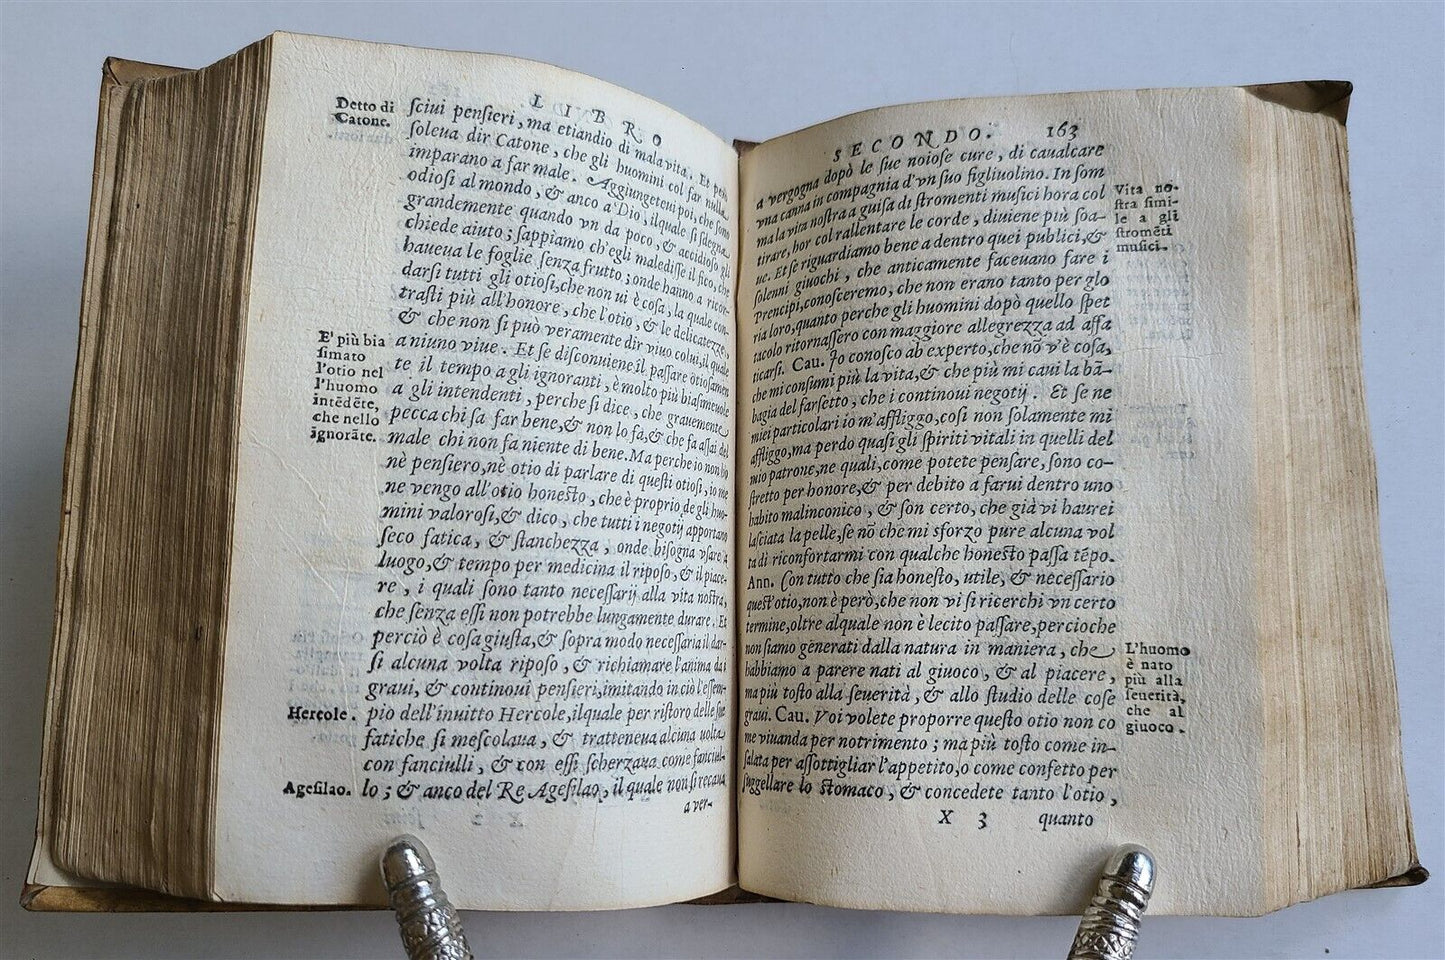 LIBRO
Detto di
Catone.
ſciui penſieri, ma etiandio di mala vita. Et però
ſoleua dir Catone, che gli huomini col far nulla
imparano a far male. Aggiungeteui poi, che ſono
odioſi al mondo, & anco a Dio, ilquale ſi ſdegna
grandemente quando vn da poco, & accidioſo gli
chiede aiuto; ſappiamo ch'egli malediſſe il fico, che
haueua le foglie ſenza frutto; onde hanno a ricor-
darſi tutti gli otioſi, che non ui è coſa, la quale con-
traſti più all'honore, che l'otio, & le delicatezze,
& che non ſi può veramente dir viuo colui, il quale
E' più bia
ſimato
l'otio nel
l'huomo
intēdēte,
che nello
ignorāte.
a niuno viue. Et ſe diſconuiene il paſſare otioſamen
te il tempo a gli ignoranti, è molto più biaſimeuole
a gli intendenti, perche ſi dice, che grauemente
pecca chi ſa far bene, & non lo fa, & che fa aſſai del
male chi non fa niente di bene. Ma perche io non hò
nè penſiero, nè otio di parlare di queſti otioſi, io me
ne vengo all'otio honeſto, che è proprio de gli huo-
mini valoroſi, & dico, che tutti i negotij apportano
ſeco fatica, & ſtanchezza, onde biſogna vſare a
luogo, & tempo per medicina il ripoſo, & il piace-
re, i quali ſono tanto neceſſarij alla vita noſtra,
che ſenza eſſi non potrebbe lungamente durare. Et
perciò è coſa giuſta, & ſopra modo neceſſaria il dar-
ſi alcuna volta ripoſo, & richiamare l'anima da i
graui, & continoui penſieri, imitando in ciò l'eſſem-
Hercole.
pio dell'inuitto Hercole, ilquale per riſtoro delle ſue
fatiche ſi meſcolaua, & tratteneua alcuna uolta
con fanciulli, & con eſſi ſcherzaua come fanciul-
Ageſilao.
lo; & anco del Re Ageſilao, il quale non ſi recaua
a ver-
SECONDO. 163
a vergogna dopò le ſue noioſe cure, di caualcare
vna canna in compagnia d'vn ſuo figliuolino. In ſom
ma la vita noſtra a guiſa di ſtromenti muſici hora col
tirare, hor col rallentare le corde, diuiene più ſoa-
ue. Et ſe riguardiamo bene a dentro quei publici, &
ſolenni giuochi, che anticamente faceuano fare i
Vita no-
ſtra ſimi-
le a gli
ſtromēti
muſici.
Prencipi, conoſceremo, che non erano tanto per glo
ria loro, quanto perche gli huomini dopò quello ſpet
tacolo ritornaſſero con maggiore allegrezza ad affa
ticarſi. Cau. Io conoſco ab experto, che nō v'è coſa,
che mi conſumi più la vita, & che più mi caui la bā-
bagia del farſetto, che i continoui negotij. Et ſe ne
miei particolari io m'affliggo, coſi non ſolamente mi
affliggo, ma perdo quaſi gli ſpiriti vitali in quelli del
mio patrone, ne quali, come potete penſare, ſono co-
ſtretto per honore, & per debito a farui dentro uno
habito malinconico, & ſon certo, che già vi haurei
laſciata la pelle, ſe nō che mi sforzo pure alcuna vol
ta di riconfortarmi con qualche honeſto paſſa tēpo.
Ann. Con tutto che ſia honeſto, utile, & neceſſario
queſt'otio, non è però, che non vi ſi ricerchi vn certo
termine, oltre alquale non è lecito paſſare, percioche
non ſiamo generati dalla natura in maniera, che
habbiamo a parere nati al giuoco, & al piacere,
ma più toſto alla ſeuerità, & allo ſtudio delle coſe
graui. Cau. Voi volete proporre queſto otio non co
L'huomo
è nato
più alla
ſeuerità,
che al
giuoco.
me viuanda per notrimento; ma più toſto come in-
ſalata per aſſottigliar l'appetito, o come confetto per
ſuggellare lo ſtomaco, & concedete tanto l'otio,
X 3 quanto